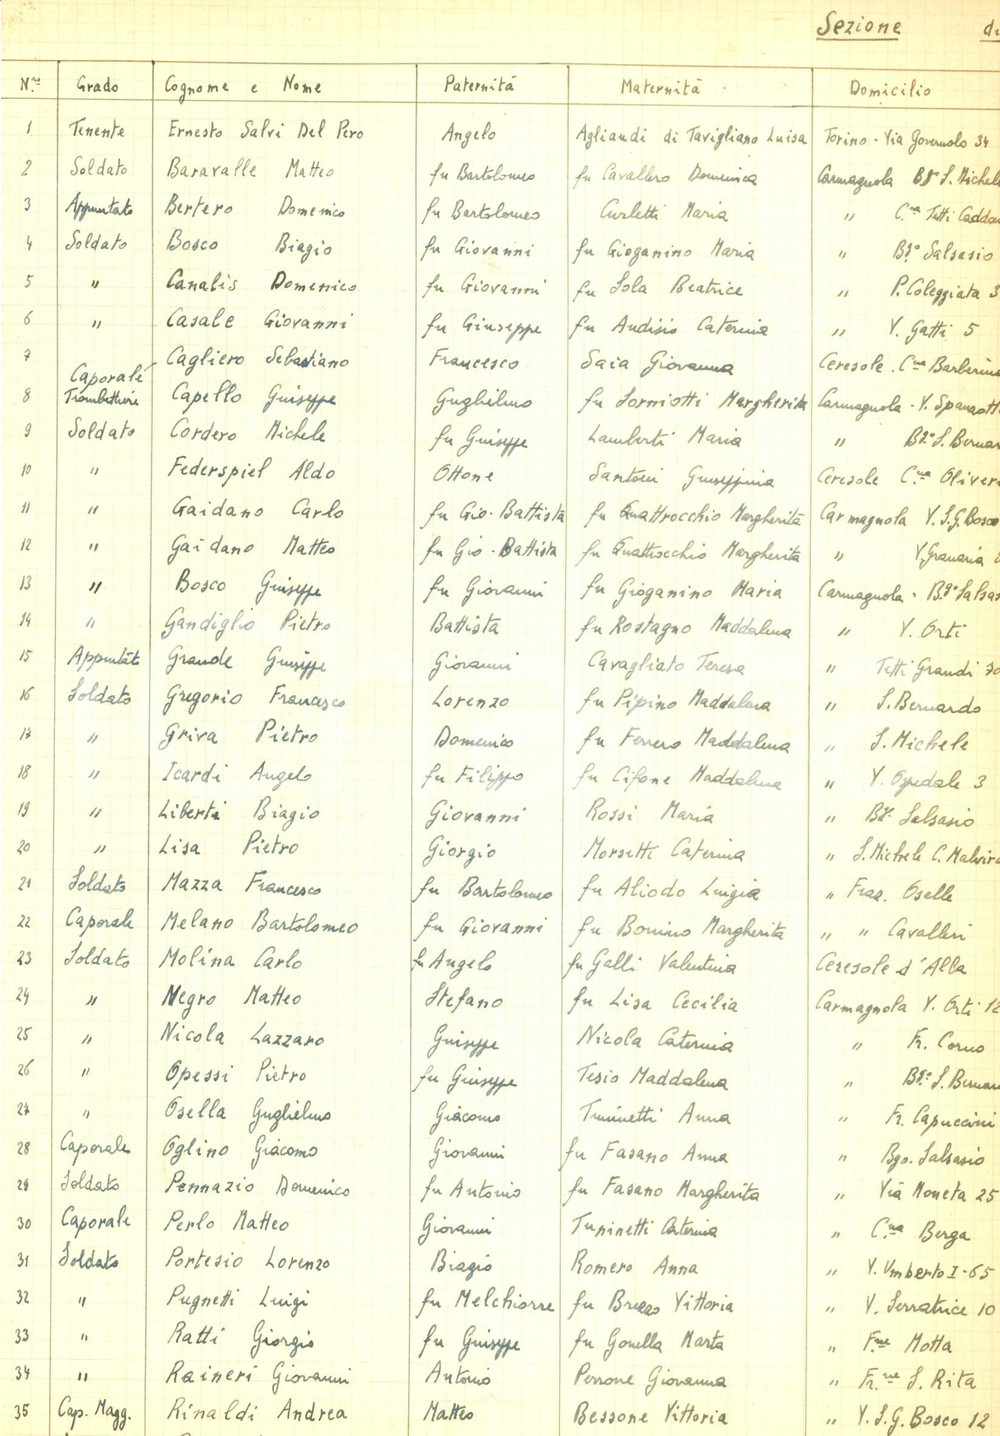 Sezione di
N.ro Grado Cognome e Nome Paternità Maternità Domicilio
1 Tenente Ernesto Salvi Del Pero Angelo Agliaudi di Tavigliano Luisa Torino - Via Governolo 34
2 Soldato Baravalle Matteo fu Bartolomeo fu Cavallero Domenica Carmagnola Bgo S. Michele
3 Appuntato Bertero Domenico fu Bartolomeo Curletti Maria " C.na Tetti
4 Soldato Bosco Biagio fu Giovanni fu Gioganino Maria " Bgo Salsasio
5 " Canalis Domenico fu Giovanni fu Sola Beatrice " P. Coleggiata 3
6 " Casale Giovanni fu Giuseppe fu Audisio Caterina " V. Gatti 5
7 Cagliero Sebastiano Francesco Saia Giovanna Ceresole . C.na
8 Caporale Trombettiere Capello Giuseppe Guglielmo fu Sorniotti Margherita Carmagnola - V.
9 Soldato Cordero Michele fu Giuseppe Lamberti Maria " Bgo S. Bernar
10 " Federspiel Aldo Ottone Santoni Giuseppina Ceresole C.na Oliver
11 " Gaidano Carlo fu Gio. Battista fu Quattrocchio Margherita Carmagnola V. S. G. Bosco
12 " Gaidano Matteo fu Gio. Battista fu Quattrocchio Margherita " V. Granaria
13 " Bosco Giuseppe fu Giovanni fu Gioganino Maria Carmagnola - Bgo Salsas
14 " Gandiglio Pietro Battista fu Rostagno Maddalena " V. Orti
15 Appuntato Grande Giuseppe Giovanni Cavagliato Teresa " Tetti Grandi 70
16 Soldato Gregorio Francesco Lorenzo fu Pipino Maddalena " S. Bernardo
17 " Griva Pietro Domenico fu Ferrero Maddalena " S. Michele
18 " Icardi Angelo fu Filippo fu Cifone Maddalena " V. Ospedale 3
19 " Liberti Biagio Giovanni Rossi Maria " Bgo Salsasio
20 " Lisa Pietro Giorgio Morsetti Caterina " S. Michele C. Malvira
21 Soldato Mazza Francesco fu Bartolomeo fu Aliodo Luigia " Fraz. Oselle
22 Caporale Melano Bartolomeo fu Giovanni fu Bonino Margherita " " Cavalleri
23 Soldato Molina Carlo fu Angelo fu Galli Valentina Ceresole d'Alba
24 " Negro Matteo Stefano fu Lisa Cecilia Carmagnola V. Orti 12
25 " Nicola Lazzaro Giuseppe Nicola Caterina " Fr. Corno
26 " Opessi Pietro fu Giuseppe Tesio Maddalena " Bgo S. Bernar
27 " Osella Guglielmo Giacomo Tuninetti Anna " Fr. Capuccini
28 Caporale Oglino Giacomo Giovanni fu Fasano Anna " Bgo. Salsasio
29 Soldato Pennazio Domenico fu Antonio fu Fasano Margherita " Via Moneta 25
30 Caporale Perlo Matteo Giovanni Tuninetti Caterina " C.na Berga
31 Soldato Portesio Lorenzo Biagio Romero Anna " V. Umberto I - 65
32 " Pugnetti Luigi fu Melchiorre fu Vittoria " V. Serratrice 10
33 " Ratti Giorgio fu Giuseppe fu Gonella Marta " F.ne Motta
34 " Raineri Giovanni Antonio Perrone Giovanna " Fr.ne S. Rita
35 Cap. Magg. Rinaldi Andrea Matteo Bessone Vittoria " V. S. G. Bosco 12